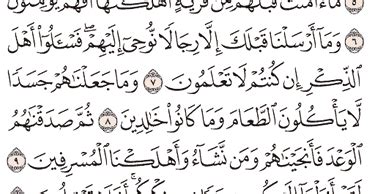 ٥ مَآ ءَامَنَتْ قَبْلَهُم مِّن قَرْيَةٍ أَهْلَكْنَٰهَآ أَفَهُمْ يُؤْمِنُونَ
٦ وَمَآ أَرْسَلْنَا قَبْلَكَ إِلَّا رِجَالًا نُّوحِىٓ إِلَيْهِمْ ۖ فَسْـَٔلُوٓا۟ أَهْلَ
ٱلذِّكْرِ إِن كُنتُمْ لَا تَعْلَمُونَ ٧ وَمَا جَعَلْنَٰهُمْ جَسَدًا
لَّا يَأْكُلُونَ ٱلطَّعَامَ وَمَا كَانُوا۟ خَٰلِدِينَ ٨ ثُمَّ صَدَقْنَٰهُمُ
ٱلْوَعْدَ فَأَنجَيْنَٰهُمْ وَمَن نَّشَآءُ وَأَهْلَكْنَا ٱلْمُسْرِفِينَ ٩